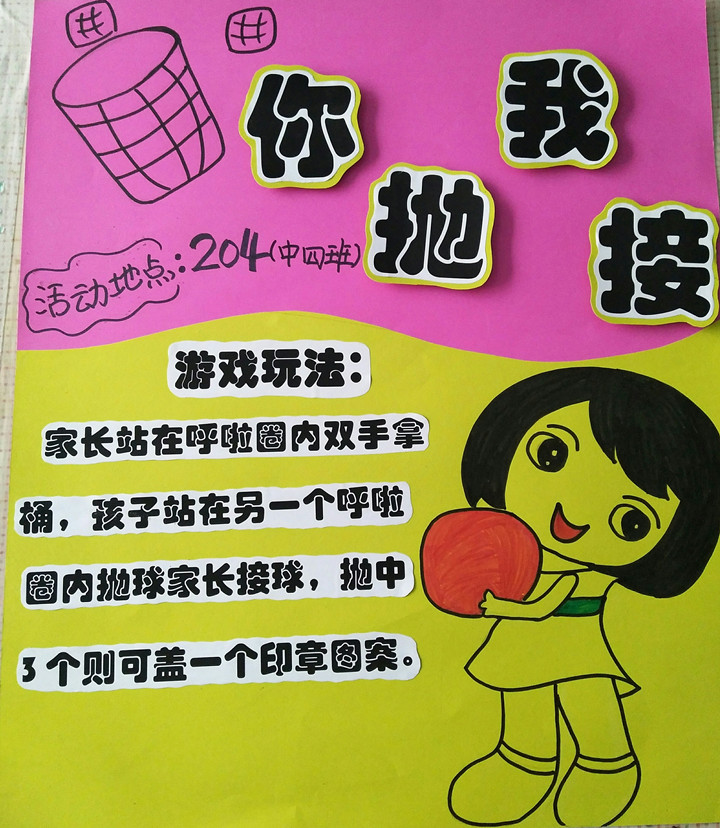 你抛我接
活动地点:204(中四班)
游戏玩法:
家长站在呼啦圈内双手拿
桶,孩子站在另一个呼啦
圈内抛球家长接球,抛中
3个则可盖一个印章图案。